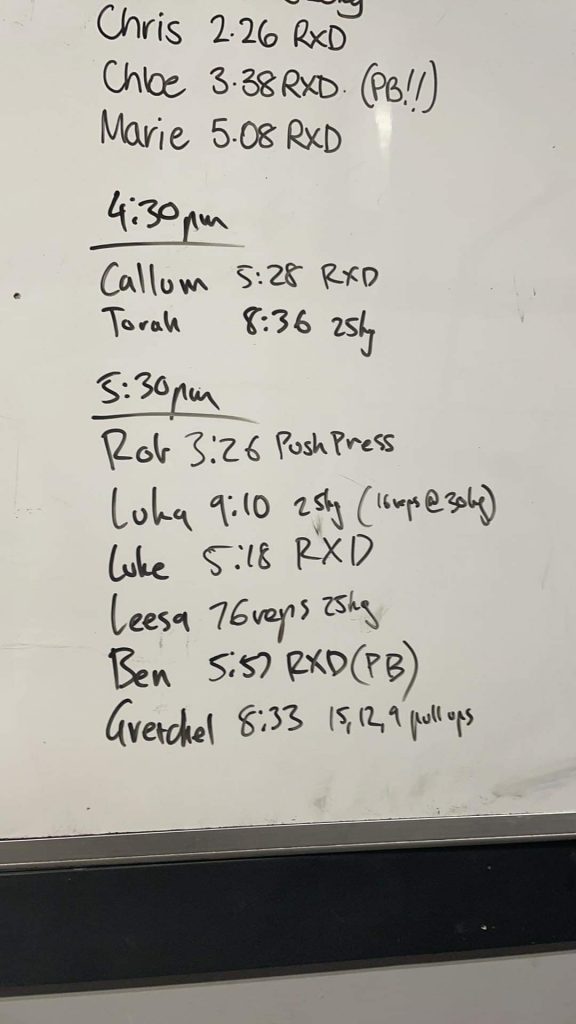 Chris 2.26 RXD
Chloe 3.38 RXD. (PB!!)
Marie 5.08 RXD
4:30pm
Callum 5:28 RXD
Torah 8:36 25kg
5:30pm
Rob 3:26 Push Press
Luka 9:10 25kg (16reps @ 30kg)
Luke 5:18 RXD
Leesa 76reps 25kg
Ben 5:57 RXD (PB)
Gretchel 8:33 15, 12, 9 pull ups